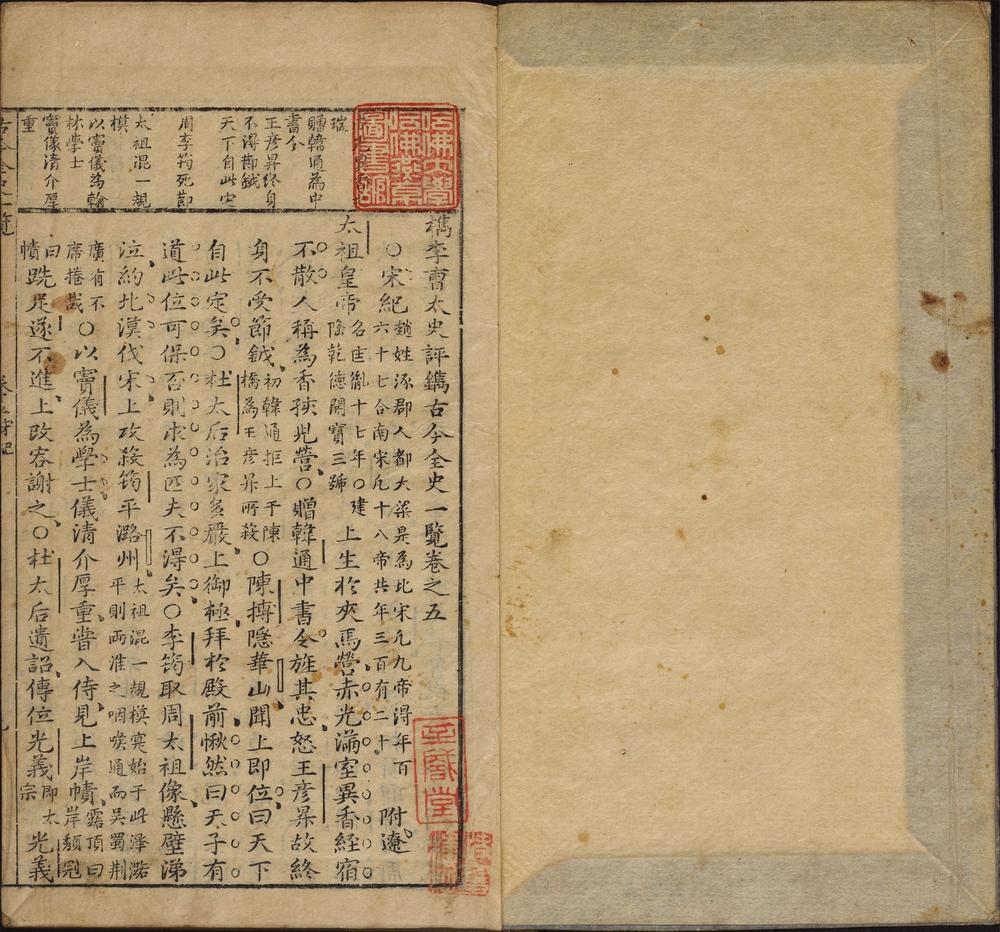 檇李曹太史評鐫古今全史一覽卷之五
○宋紀 趙姓涿郡人都大梁是為北宋凡九帝得年百六十七合南宋凡十八帝共年三百有二十 附遼
太祖皇帝 名匡胤十七年○建隆乾德開寶三號 上生於夾馬營赤光滿室異香經宿
不散人稱為香孩兒營○贈韓通中書令旌其忠怒王彦昇故終
身不受節鉞 初韓通拒上于陳橋為王彦昇所殺 ○陳摶隱華山聞上即位曰天下
自此定矣○杜太后治家多嚴上御極拜於殿前愀然曰天子有
道此位可保否則求為匹夫不得矣○李筠取周太祖像懸壁涕
泣約北漢伐宋上攻殺筠平潞州 太祖混一規模寔始于此澤潞平則兩淮之咽喉通而吳蜀荆廣有不席捲哉
○以竇儀為學士儀清介厚重甞入侍見上岸幘 露頂曰岸頹冠曰幘
跣足遂不進上改容謝之○杜太后遺詔傳位光義 即太宗 光義
瑞
贈韓通為中書令
王彦昇終身不得節鉞
天下自此定
周李筠死節
太祖混一規模
以竇儀為翰林學士
竇儀清介厚重
哈佛大學哈佛燕京圖書館